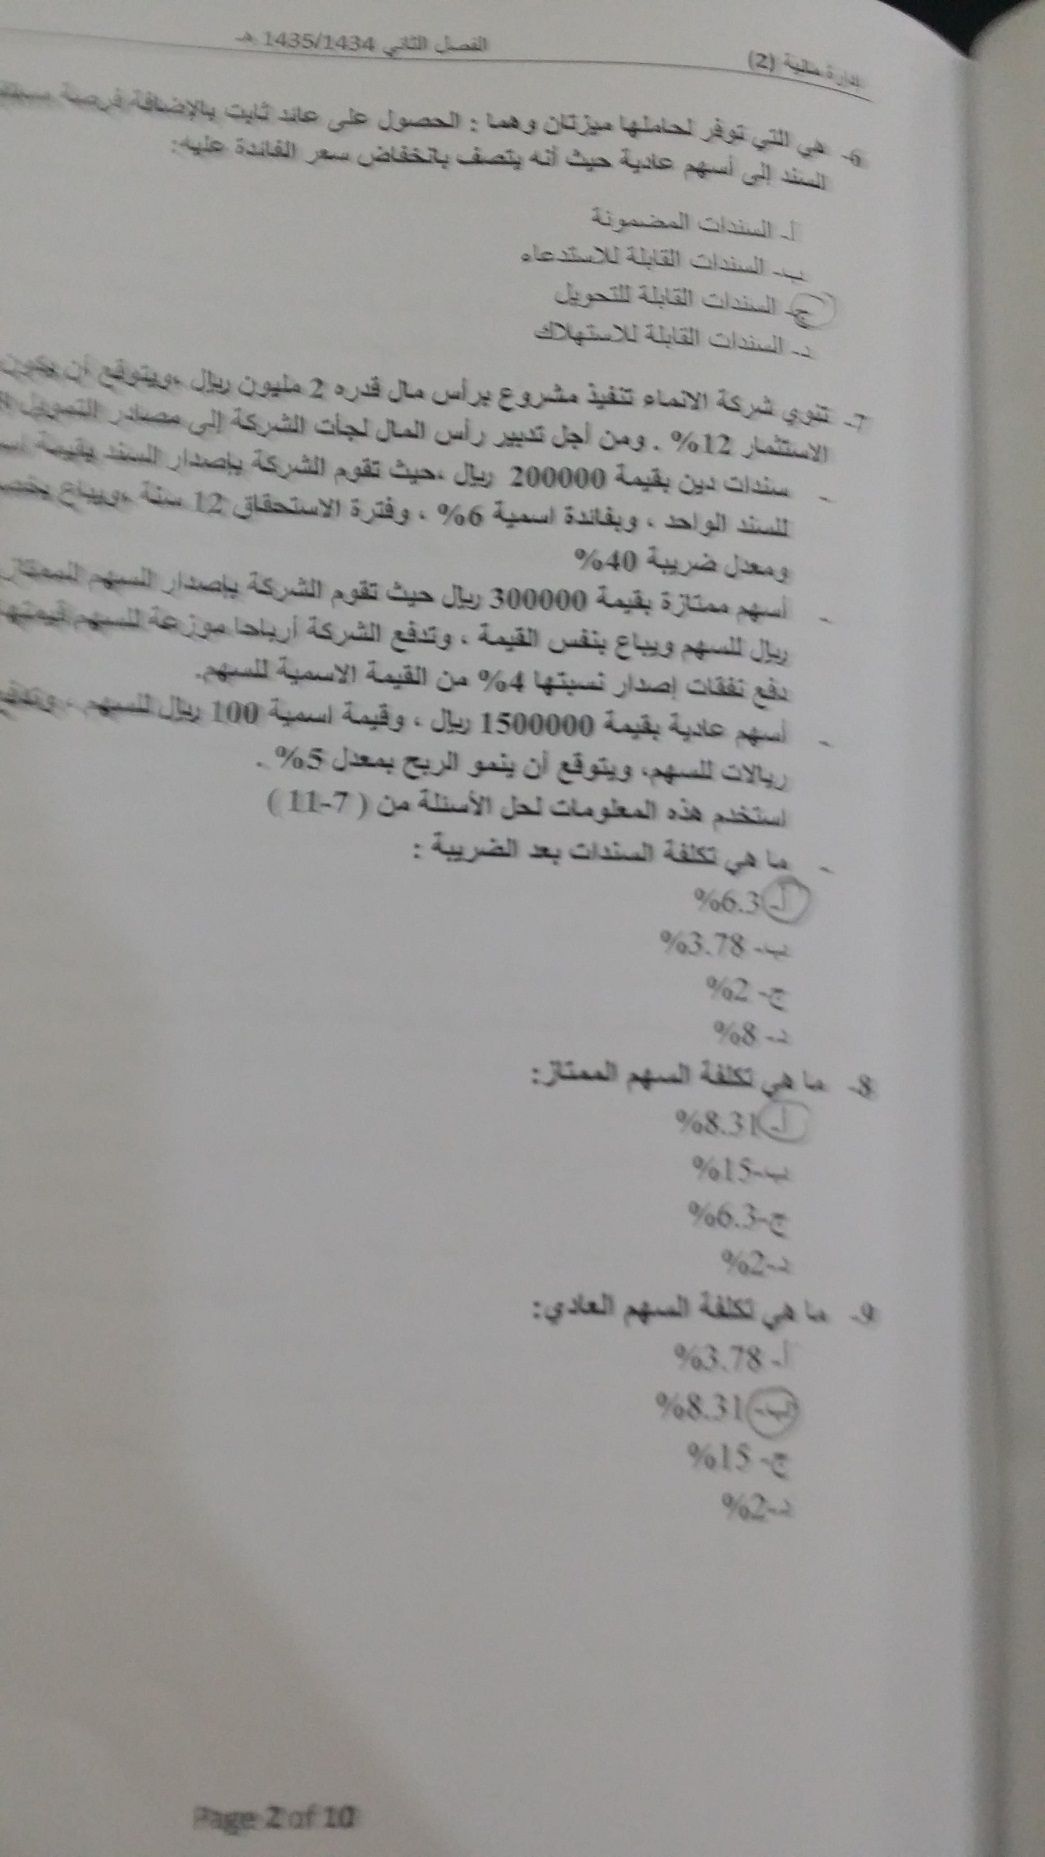 إدارة مالية (2)
الفصل الثاني 1435/1434 هـ
6- هي التي توفر لحاملها ميزتان وهما : الحصول على عائد ثابت بالإضافة فرصة
السند إلى أسهم عادية حيث أنه يتصف بانخفاض سعر الفائدة عليه:
أ- السندات المضمونة
ب- السندات القابلة للاستدعاء
ج- السندات القابلة للتحويل
د- السندات القابلة للاستهلاك
7- تنوي شركة الانماء تنفيذ مشروع برأس مال قدره 2 مليون ريال ،ويتوقع أن يكون
الاستثمار 12% . ومن أجل تدبير رأس المال لجأت الشركة إلى مصادر التمويل
- سندات دين بقيمة 200000 ريال ،حيث تقوم الشركة بإصدار السند بقيمة
للسند الواحد ، وبفائدة اسمية 6% ، وفترة الاستحقاق 12 سنة ،ويباع
ومعدل ضريبة 40%
- أسهم ممتازة بقيمة 300000 ريال حيث تقوم الشركة بإصدار السهم الممتاز
ريال للسهم ويباع بنفس القيمة ، وتدفع الشركة أرباحا موزعة للسهم قيمتها
دفع نفقات إصدار نسبتها 4% من القيمة الاسمية للسهم.
- أسهم عادية بقيمة 1500000 ريال ، وقيمة اسمية 100 ريال للسهم ، وتدفع
ريالات للسهم، ويتوقع أن ينمو الربح بمعدل 5% .
استخدم هذه المعلومات لحل الأسئلة من ( 7-11 )
- ما هي تكلفة السندات بعد الضريبة :
أ- 6.3%
ب- 3.78%
ج- 2%
د- 8%
8- ما هي تكلفة السهم الممتاز:
أ- 8.31%
ب-15%
ج-6.3%
د-2%
9- ما هي تكلفة السهم العادي:
أ- 3.78%
ب- 8.31%
ج- 15%
د-2%
Page 2 of 10